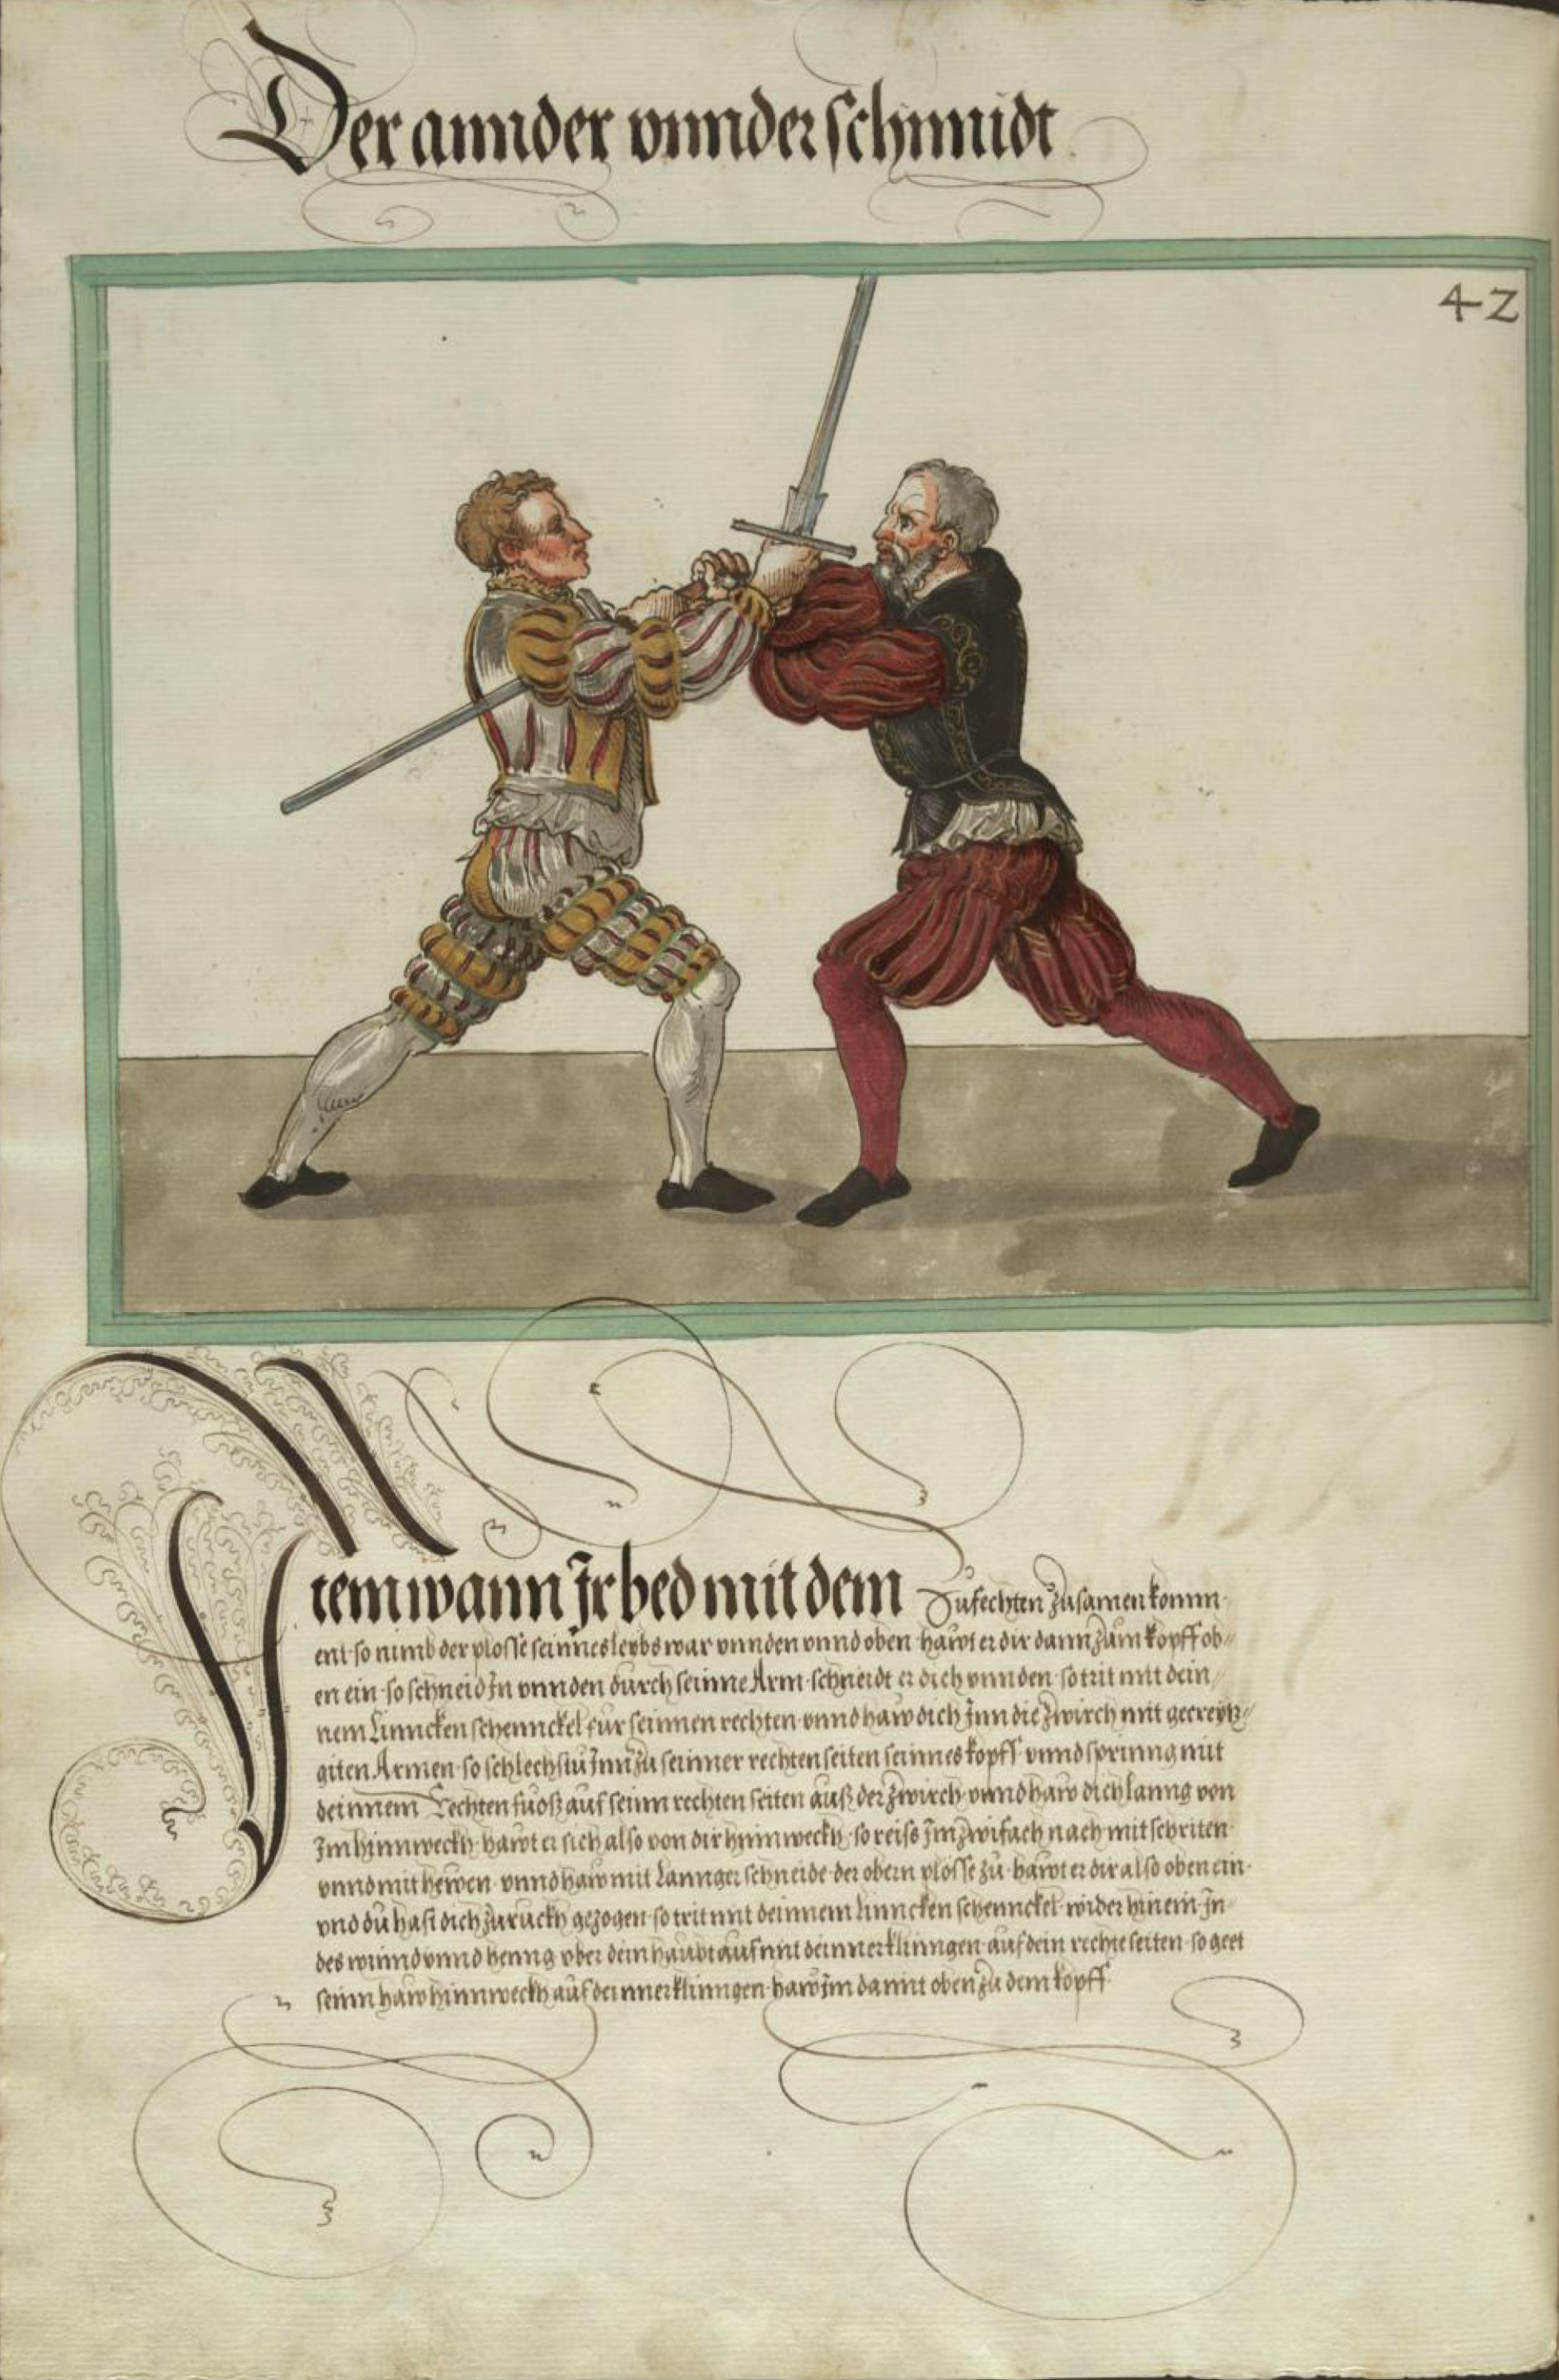 Der annder vnnder schnnidt
42
Item wann Jr bed mit dem Zufechten zusamen komm-
ent so nimb der plosse seinnes leybs war vnnden vnnd oben hawt er dir dann zum kopff ob-
en ein so schneid In vnnden durch seinne Arm schneidt er dich vnnden so trit mit dein-
nem Linncken schennckel fur seinnen rechten vnnd haw dich Inn die zwirch mit gecreytz-
giten Armen so schlechstu Inn zu seinner rechten seiten seinnes kopff vnnd spring mit
deinnem Rechten fuoß auf seinn rechten seiten auß der zwirch vnnd haw dich lanng von
Im hinnweckh hawt er sich also von dir hinnweckh so reiss Im zwifach nach mit schriten
vnnd mit hewen vnnd haw mit Lannger schneide der obern plosse zu hawt er dir also oben ein
vnd du hast dich zuruckh gezogen so trit mit deinnem linncken schennckel wider hinein In-
des winnd vnnd henng vber dein haubt auf mit deinner klinngen auf dein rechte seiten so geet
seinn haw hinnweckh auf deinner klinngen haw Im damit oben zu dem kopff